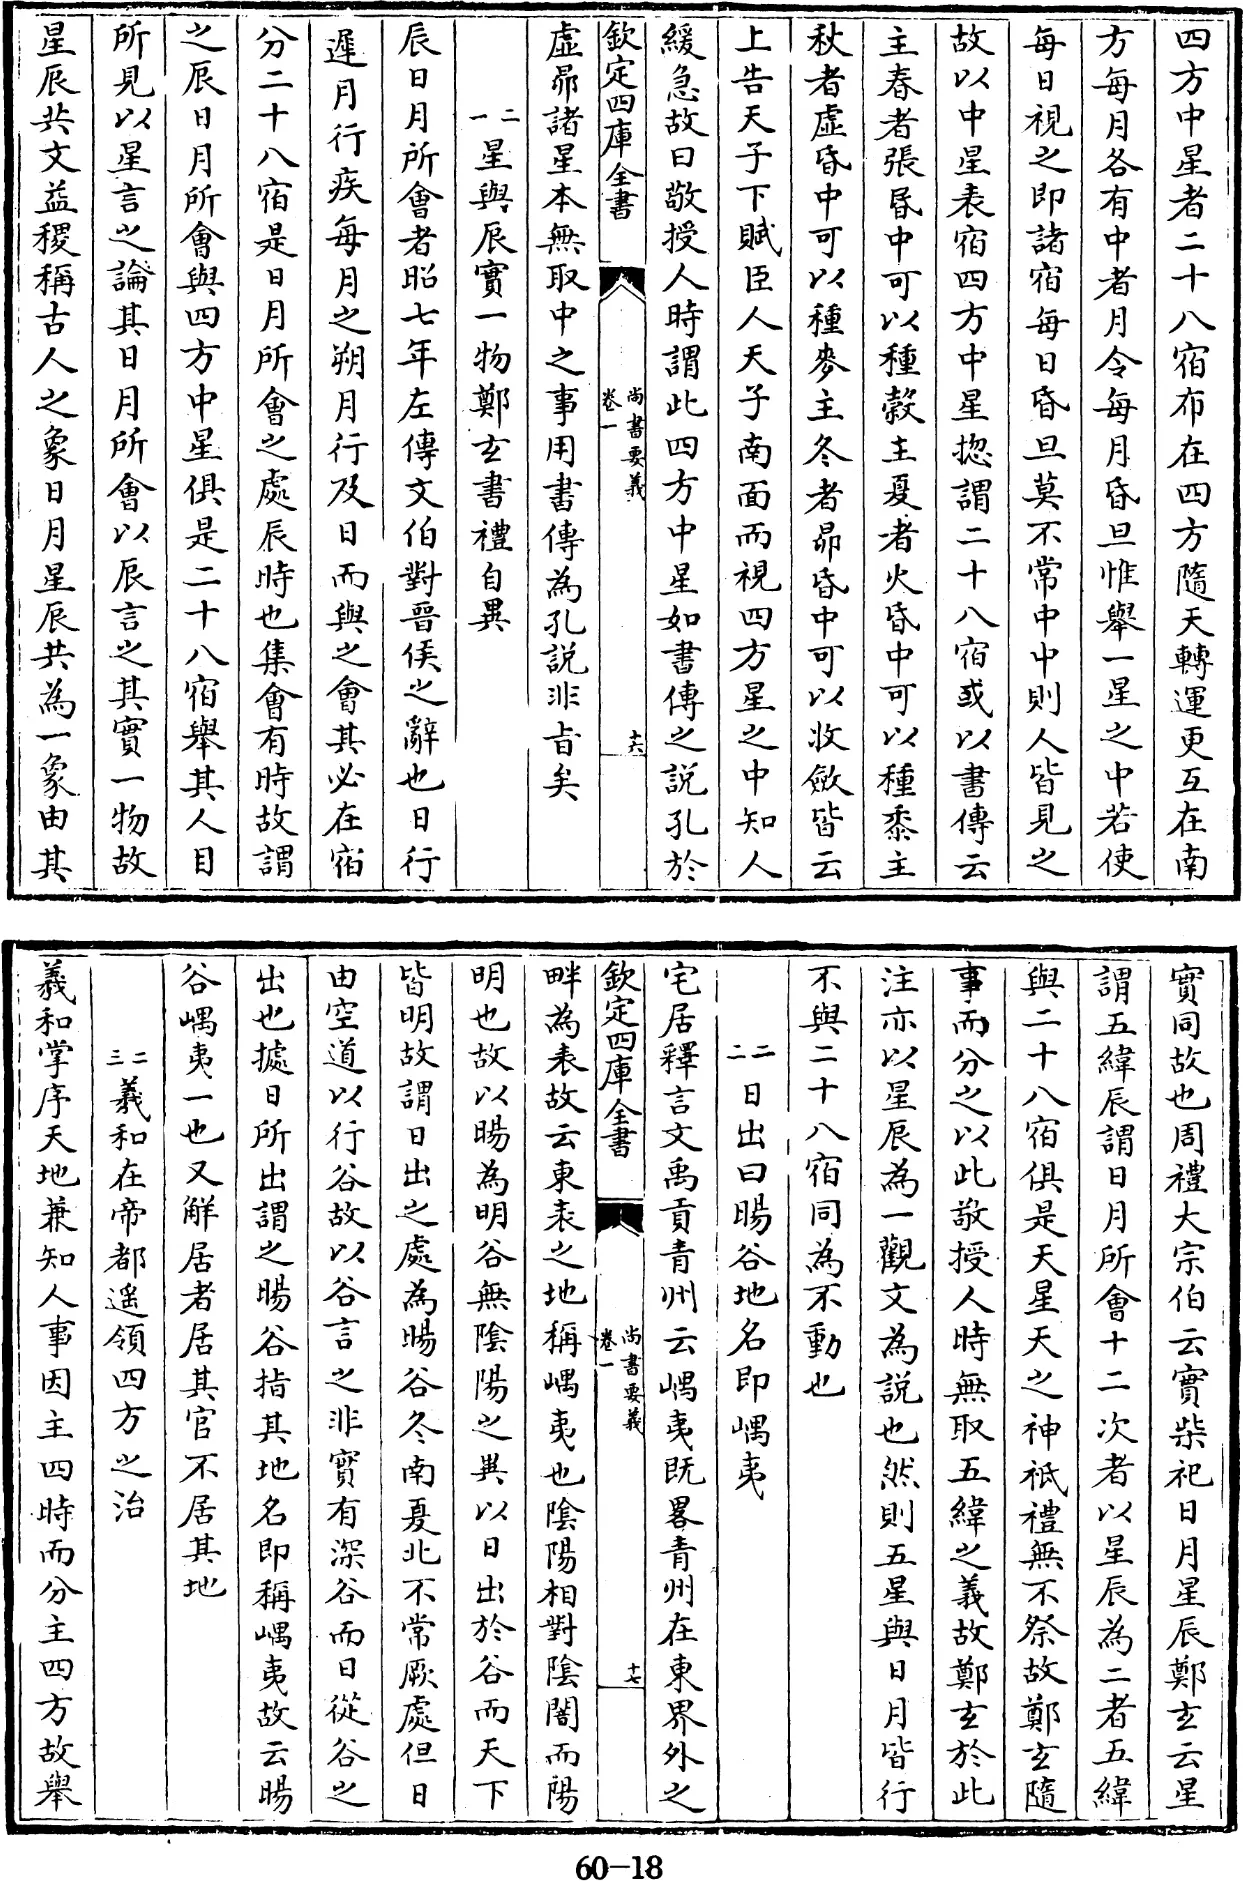 四方中星者二十八宿布在四方隨天轉運更互在南
方每月各有中者月令每月昏旦惟舉一星之中若使
每日視之即諸宿每日昏旦莫不常中中則人皆見之
故以中星表宿四方中星揔謂二十八宿或以書傳云
主春者張昏中可以種穀主夏者火昏中可以種黍主
秋者虛昏中可以種麥主冬者昴昏中可以收斂皆云
上告天子下賦臣人天子南面而視四方星之中知人
緩急故曰敬授人時謂此四方中星如書傳之說孔於
欽定四庫全書
尚書要義
卷一
十六
虛昴諸星本無取中之事用書傳為孔說非旨矣
二一星與辰實一物鄭玄書禮自異
辰日月所會者昭七年左傳文伯對晉侯之辭也日行
遲月行疾每月之朔月行及日而與之會其必在宿
分二十八宿是日月所會之處辰時也集會有時故謂
之辰日月所會與四方中星俱是二十八宿舉其人目
所見以星言之論其日月所會以辰言之其實一物故
星辰共文益稷稱古人之象日月星辰共為一象由其
實同故也周禮大宗伯云實柴祀日月星辰鄭玄云星
謂五緯辰謂日月所會十二次者以星辰為二者五緯
與二十八宿俱是天星天之神祇禮無不祭故鄭玄隨
事而分之以此敬授人時無取五緯之義故鄭玄於此
注亦以星辰為一觀文為說也然則五星與日月皆行
不與二十八宿同為不動也
二二日出曰暘谷地名即嵎夷
宅居釋言文禹貢青州云嵎夷既畧青州在東界外之
欽定四庫全書
尚書要義
卷一
十七
畔為表故云東表之地稱嵎夷也陰陽相對陰闇而陽
明也故以暘為明谷無陰陽之異以日出於谷而天下
皆明故謂日出之處為暘谷冬南夏北不常厥處但日
由空道以行谷故以谷言之非實有深谷而日從谷之
出也據日所出謂之暘谷指其地名即稱嵎夷故云暘
谷嵎夷一也又解居者居其官不居其地
二三羲和在帝都遥領四方之治
羲和掌序天地兼知人事因主四時而分主四方故舉
60-18